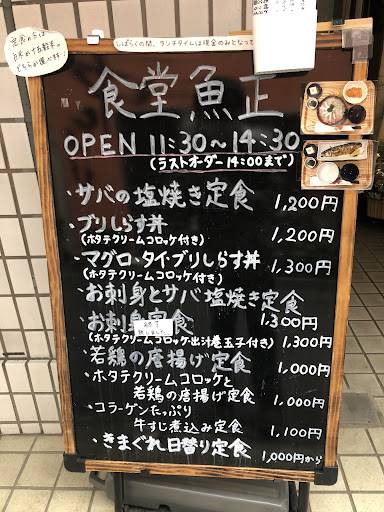 定食の方は
白米か十五穀米の
どちらか選べます!
しばらくの間、ランチタイムは現金のみとなっ
食堂魚正
OPEN 11:30~14:30
(ラストオーダー14:00まで)
・サバの塩焼き定食 1,200円
・ブリしらす丼
(ホタテクリームコロッケ付き) 1,200円
・マグロ・タイ・ブリしらす丼
(ホタテクリームコロッケ付き) 1,300円
・お刺身とサバ塩焼き定食
1,300円
・お刺身定食
終了
致しました
(ホタテクリームコロッケ・出汁巻玉子付き) 1,300円
・若鶏の唐揚げ定食 1,000円
・ホタテクリームコロッケと
若鶏の唐揚げ定食 1,000円
・コラーゲンたっぷり
牛すじ煮込み定食 1,100円
・きまぐれ日替り定食
1,000円から